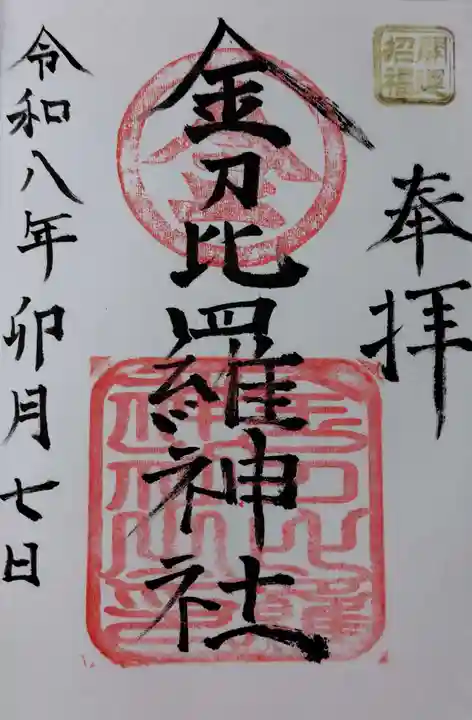 開運
招福
奉拝
金刀比羅神社
令和八年卯月七日